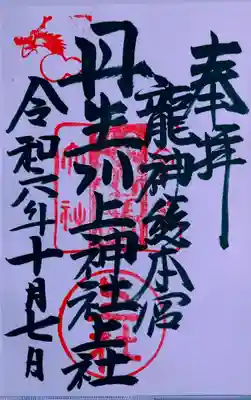 奉拝
龍神総本宮
丹生川上神社上社
令和六年十月七日